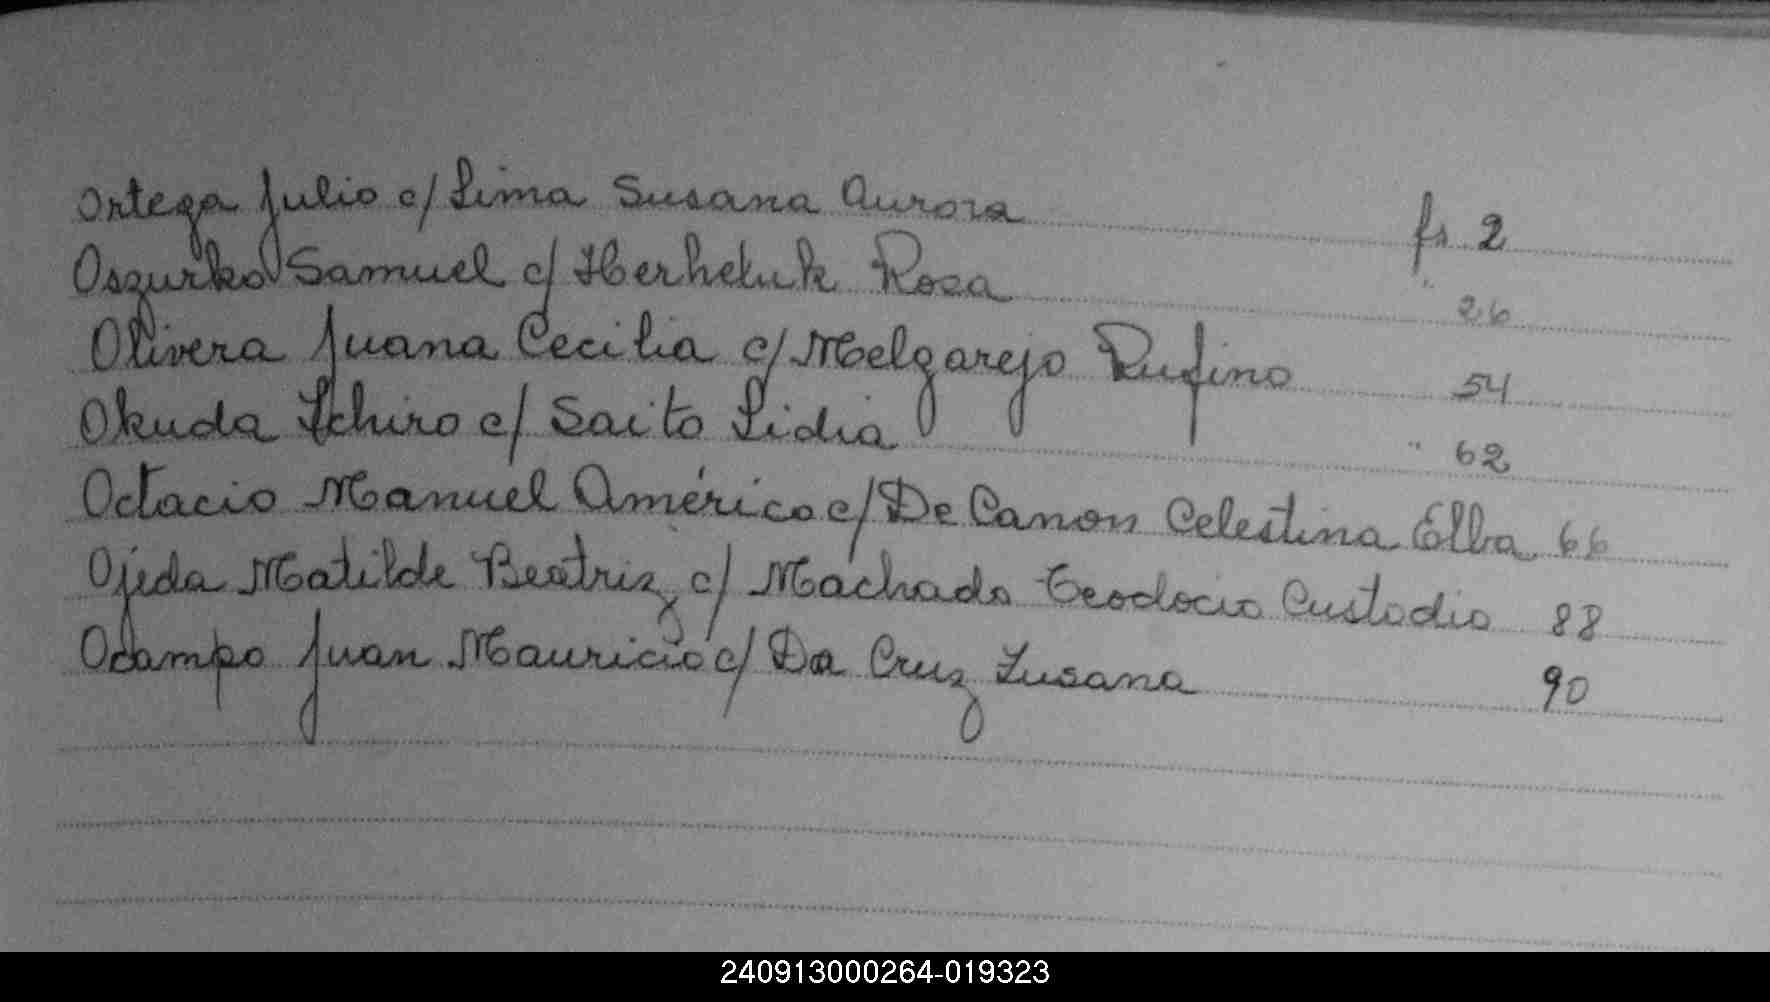 Ortega Julio c/ Lima Susana Aurora fs 2
Oszurko Samuel c/ Herheluk Rosa " 26
Olivera Juana Cecilia c/ Melgarejo Rufino 54
Okuda Ichiro c/ Saito Lidia " 62
Octacio Manuel Américo c/ De Canon Celestina Elba 66
Ojeda Matilde Beatriz c/ Machado Teodocio Custodio 88
Ocampo Juan Mauricio c/ Da Cruz Susana 90
240913000264-019323